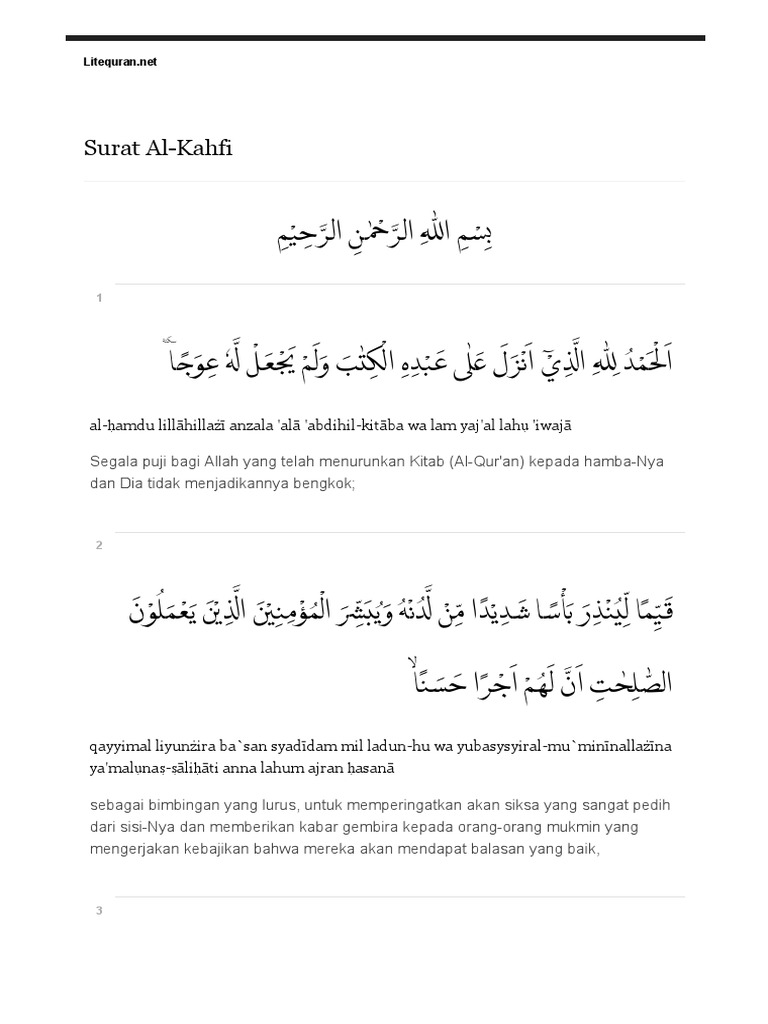 Litequran.net
Surat Al-Kahfi
بِسْمِ اللّٰهِ الرَّحْمٰنِ الرَّحِيْمِ
1
اَلْحَمْدُ لِلّٰهِ الَّذِيْٓ اَنْزَلَ عَلٰى عَبْدِهِ الْكِتٰبَ وَلَمْ يَجْعَلْ لَّهٗ عِوَجًا ۜ
al-ḥamdu lillāhillażī anzala 'alā 'abdihil-kitāba wa lam yaj'al lahụ 'iwajā
Segala puji bagi Allah yang telah menurunkan Kitab (Al-Qur'an) kepada hamba-Nya
dan Dia tidak menjadikannya bengkok;
2
قَيِّمًا لِّيُنْذِرَ بَأْسًا شَدِيْدًا مِّنْ لَّدُنْهُ وَيُبَشِّرَ الْمُؤْمِنِيْنَ الَّذِيْنَ يَعْمَلُوْنَ
الصّٰلِحٰتِ اَنَّ لَهُمْ اَجْرًا حَسَنًاۙ
qayyimal liyunżira ba`san syadīdam mil ladun-hu wa yubasysyiral-mu`minīnallażīna
ya'malụnaṣ-ṣāliḥāti anna lahum ajran ḥasanā
sebagai bimbingan yang lurus, untuk memperingatkan akan siksa yang sangat pedih
dari sisi-Nya dan memberikan kabar gembira kepada orang-orang mukmin yang
mengerjakan kebajikan bahwa mereka akan mendapat balasan yang baik,
3